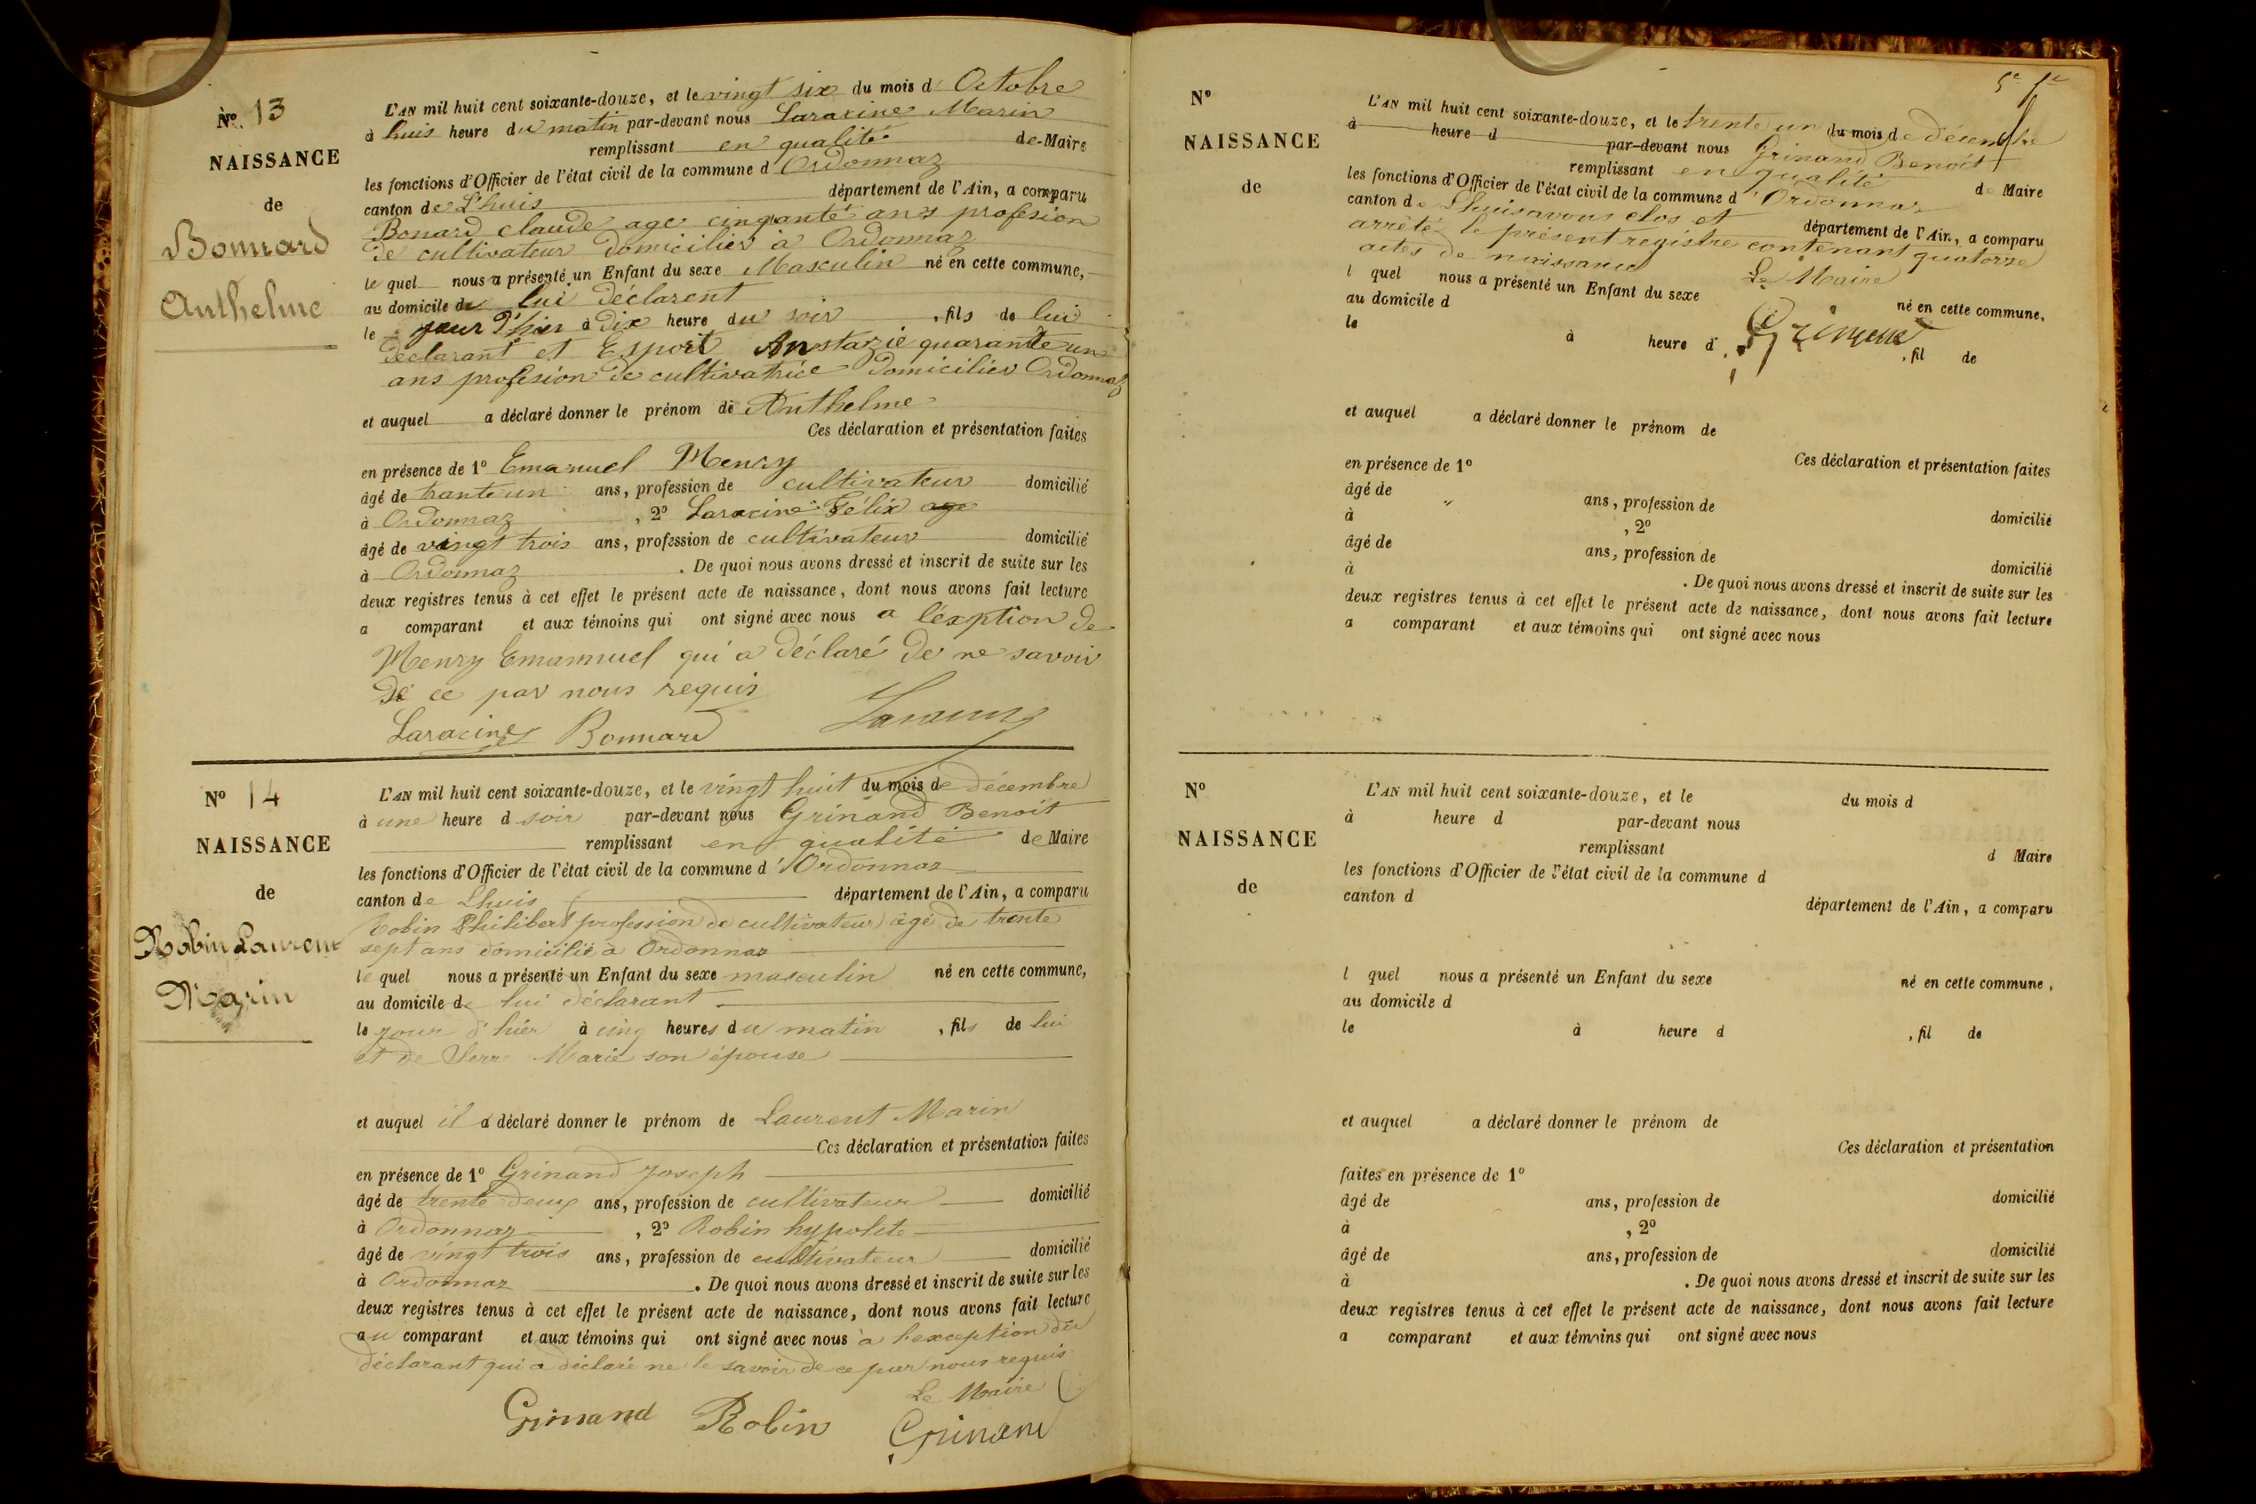 N° 13
NAISSANCE
de
Bonnard
Anthelme
L'AN mil huit cent soixante-douze, et le vingt six du mois d' Octobre
à huis heure du matin par-devant nous Laracine Marin
remplissant en qualité de Maire
les fonctions d'Officier de l'état civil de la commune d Ordonnaz
canton de L'huis département de l'Ain, a comparu
Bonard claude age cinquante ans profesion
de cultivateur domicilier à Ordonnaz
le quel nous a présenté un Enfant du sexe Masculin né en cette commune,
au domicile de lui déclarent
le jour d'hier à dix heure du soir , fils de lui
déclarant et Esport Anstazie quarante un
ans profesion de cultivatrice domicilier Ordonnaz
et auquel a déclaré donner le prénom de Anthelme
Ces déclaration et présentation faites
en présence de 1° Emanuel Menry
âgé de trante un ans, profession de cultivateur domicilié
à Ordonnaz , 2° Laracine Félix age
âgé de vingt trois ans, profession de cultivateur domicilié
à Ordonnaz . De quoi nous avons dressé et inscrit de suite sur les
deux registres tenus à cet effet le présent acte de naissance, dont nous avons fait lecture
a comparant et aux témoins qui ont signé avec nous a l'éxption de
Menry Emannuel qui a déclaré de ne savoir
de ce par nous requis
Laracine Bonnard Laracine
N° 14
NAISSANCE
de
Robin Laurent
Marin
L'AN mil huit cent soixante-douze, et le vingt huit du mois de décembre
à une heure d soir par-devant nous Grinand Benoit
remplissant en qualité de Maire
les fonctions d'Officier de l'état civil de la commune d'Ordonnaz
canton de Lhuis département de l'Ain, a comparu
Robin Philibert profession de cultivateur âgé de trente
sept ans domicilié à Ordonnaz
le quel nous a présenté un Enfant du sexe masculin né en cette commune,
au domicile de lui déclarant
le jour d'hier à cinq heures du matin , fils de lui
et de Serre Marie son épouse
et auquel il a déclaré donner le prénom de Laurent Marin
Ces déclaration et présentation faites
en présence de 1° Grinand Joseph
âgé de trente deux ans, profession de cultivateur domicilié
à Ordonnaz , 2° Robin hypolite
âgé de vingt trois ans, profession de cultivateur domicilié
à Ordonnaz . De quoi nous avons dressé et inscrit de suite sur les
deux registres tenus à cet effet le présent acte de naissance, dont nous avons fait lecture
au comparant et aux témoins qui ont signé avec nous à l'exception du
déclarant qui a déclaré ne le savoir de ce par nous requis
Le Maire
Grinand Robin Grinand
N°
NAISSANCE
de
L'AN mil huit cent soixante-douze, et le trente un du mois de décembre
à heure d par-devant nous Grinand Benoit
remplissant en qualité de Maire
les fonctions d'Officier de l'état civil de la commune d'Ordonnaz
canton de Lhuis avons clos et département de l'Ain, a comparu
arrêté le présent registre contenant quatorze
actes de naissance
Le Maire
l quel nous a présenté un Enfant du sexe né en cette commune,
au domicile d
Grinand
le à heure d , fil de
et auquel a déclaré donner le prénom de
Ces déclaration et présentation faites
en présence de 1°
âgé de ans, profession de domicilié
à , 2°
âgé de ans, profession de domicilié
à . De quoi nous avons dressé et inscrit de suite sur les
deux registres tenus à cet effet le présent acte de naissance, dont nous avons fait lecture
a comparant et aux témoins qui ont signé avec nous
N°
NAISSANCE
de
L'AN mil huit cent soixante-douze, et le du mois d
à heure d par-devant nous
remplissant d Maire
les fonctions d'Officier de l'état civil de la commune d
canton d département de l'Ain, a comparu
l quel nous a présenté un Enfant du sexe né en cette commune,
au domicile d
le à heure d , fil de
et auquel a déclaré donner le prénom de
Ces déclaration et présentation
faites en présence de 1°
âgé de ans, profession de domicilié
à , 2°
âgé de ans, profession de domicilié
à . De quoi nous avons dressé et inscrit de suite sur les
deux registres tenus à cet effet le présent acte de naissance, dont nous avons fait lecture
a comparant et aux témoins qui ont signé avec nous